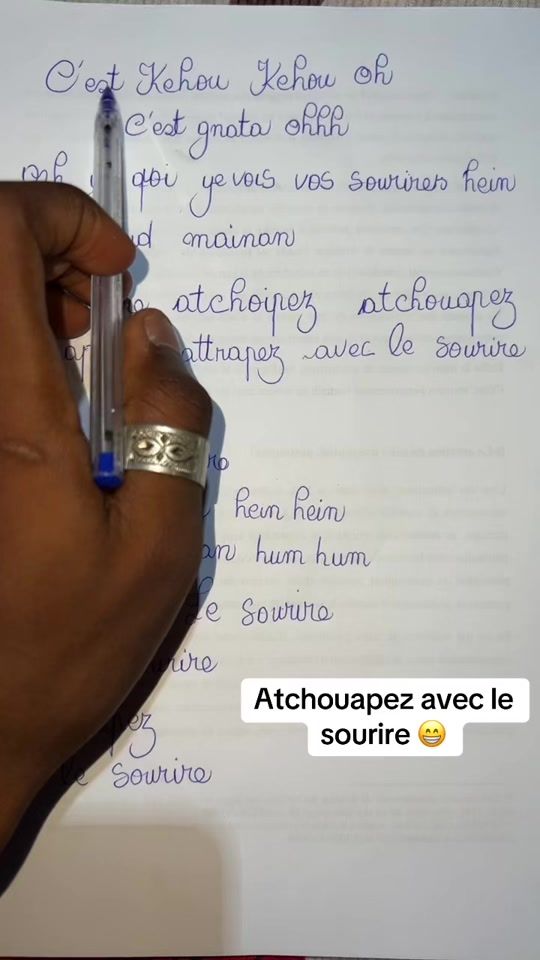 C'est Kehou Kehou oh
C'est gnata ohhh
ooh qoi ye vois vos sourires hein
mainan
atchoipez atchouapez
attrapez avec le sourire
hein hein
hum hum
Le sourire
sourire
Atchouapez avec le
sourire 😁